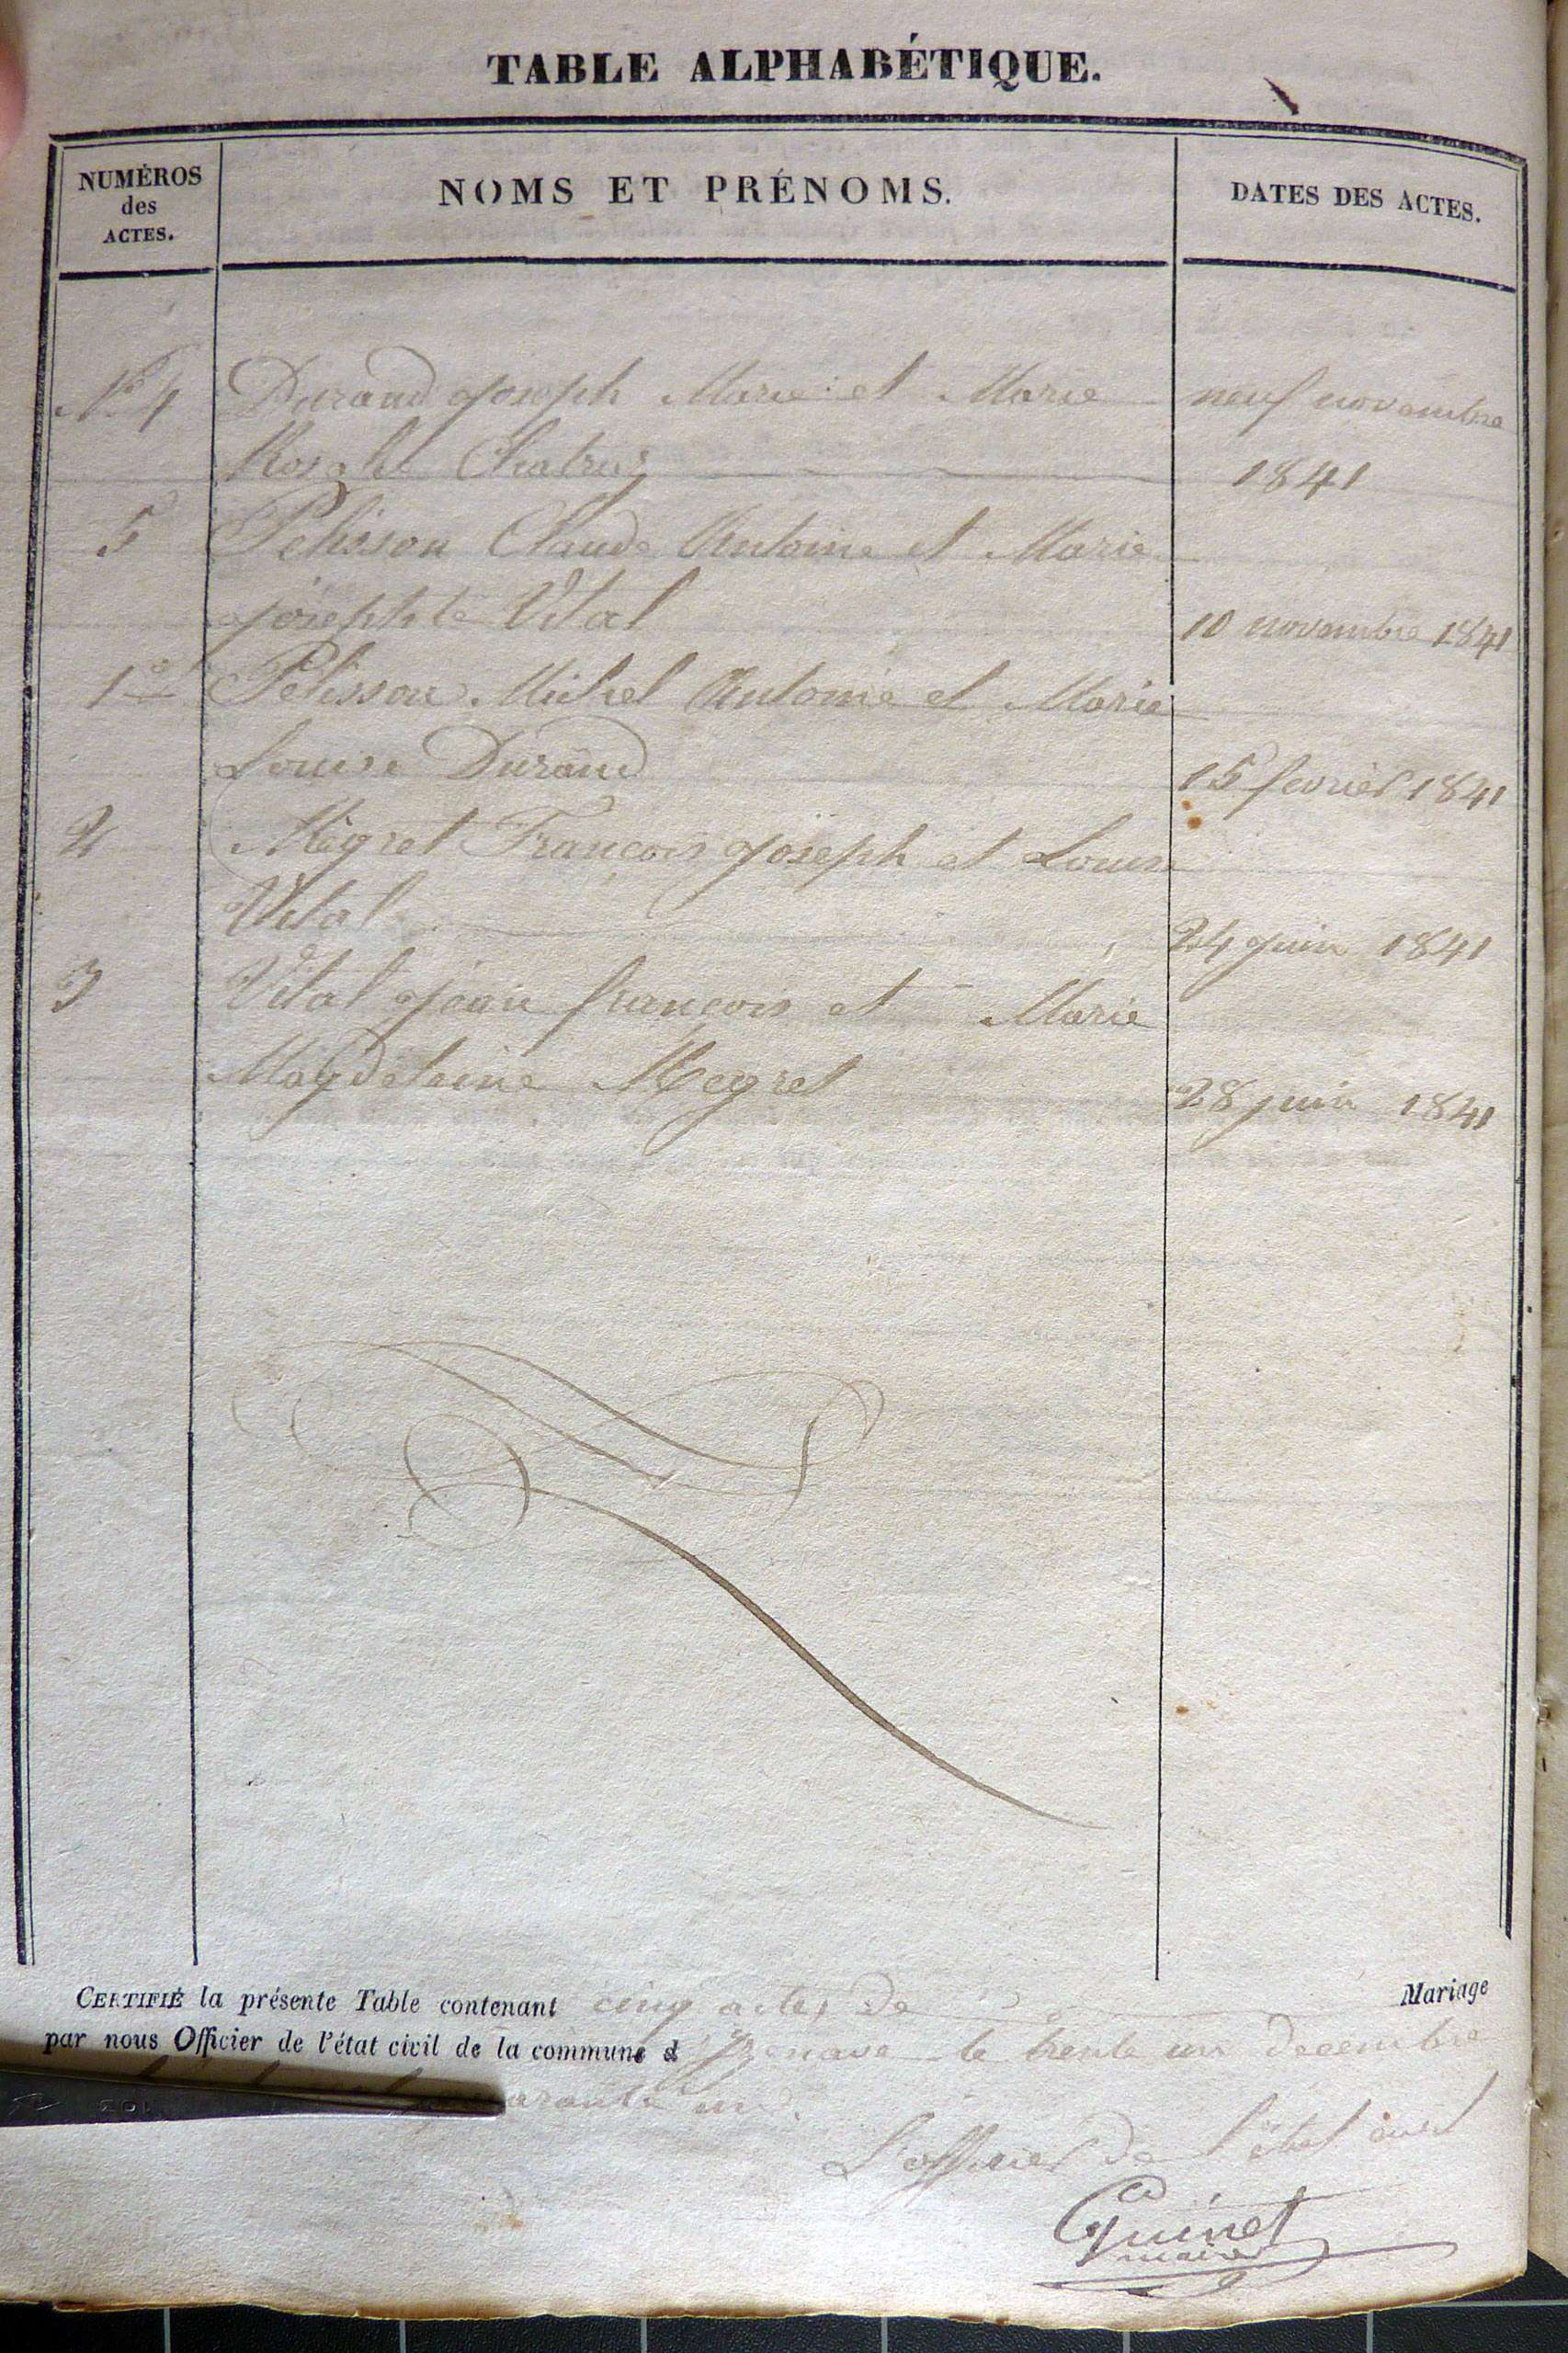 TABLE ALPHABÉTIQUE.
NUMÉROS des ACTES.
NOMS ET PRÉNOMS.
DATES DES ACTES.
N° 4 Durand joseph Marie et Marie neuf novembre
Rosalie 1841
5 Pelisson Claude Antoine et Marie
josephte Vital 10 novembre 1841
1° Pelisson Michel Antoine et Marie
Louise Durand 15 fevrier 1841
2 Mègret François joseph et Louise
Vital 24 juin 1841
3 Vital jean françois et Marie
Magdeleine Megret 28 juin 1841
CERTIFIÉ la présente Table contenant cinq actes de Mariage
par nous Officier de l'état civil de la commune d le trente un decembre
quarante un.
L'officier de l'état civil
Guinet
maire